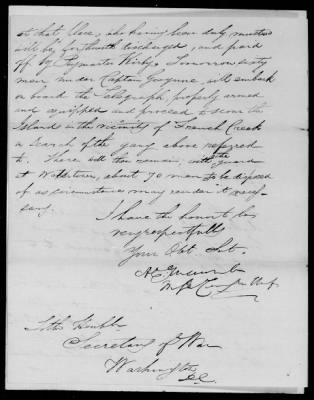 at that place, who having been duly mustered
will be forthwith discharged, and paid
off by Paymaster Kirby. Tomorrow sixty
men under Captain Gwynne, will embark
on board the Telegraph, properly armed
and equipped and proceed to scour the
Island in the vicinity of French Creek
in search of the gang above referred
to. There will then remain, with the guard
at Watertown, about 70 men to be disposed
of as circumstances may render it neces-
sary.
I have the honor to be
very respectfully
Your Obt. Sert.
To the Honble
Secretary of War
Washington
D.C.